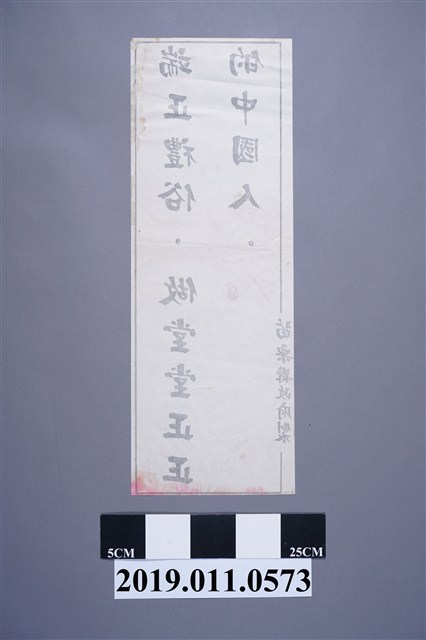 端正禮俗，做堂堂正正
的中國人。
苗栗縣政府製
5CM 25CM
2019.011.0573